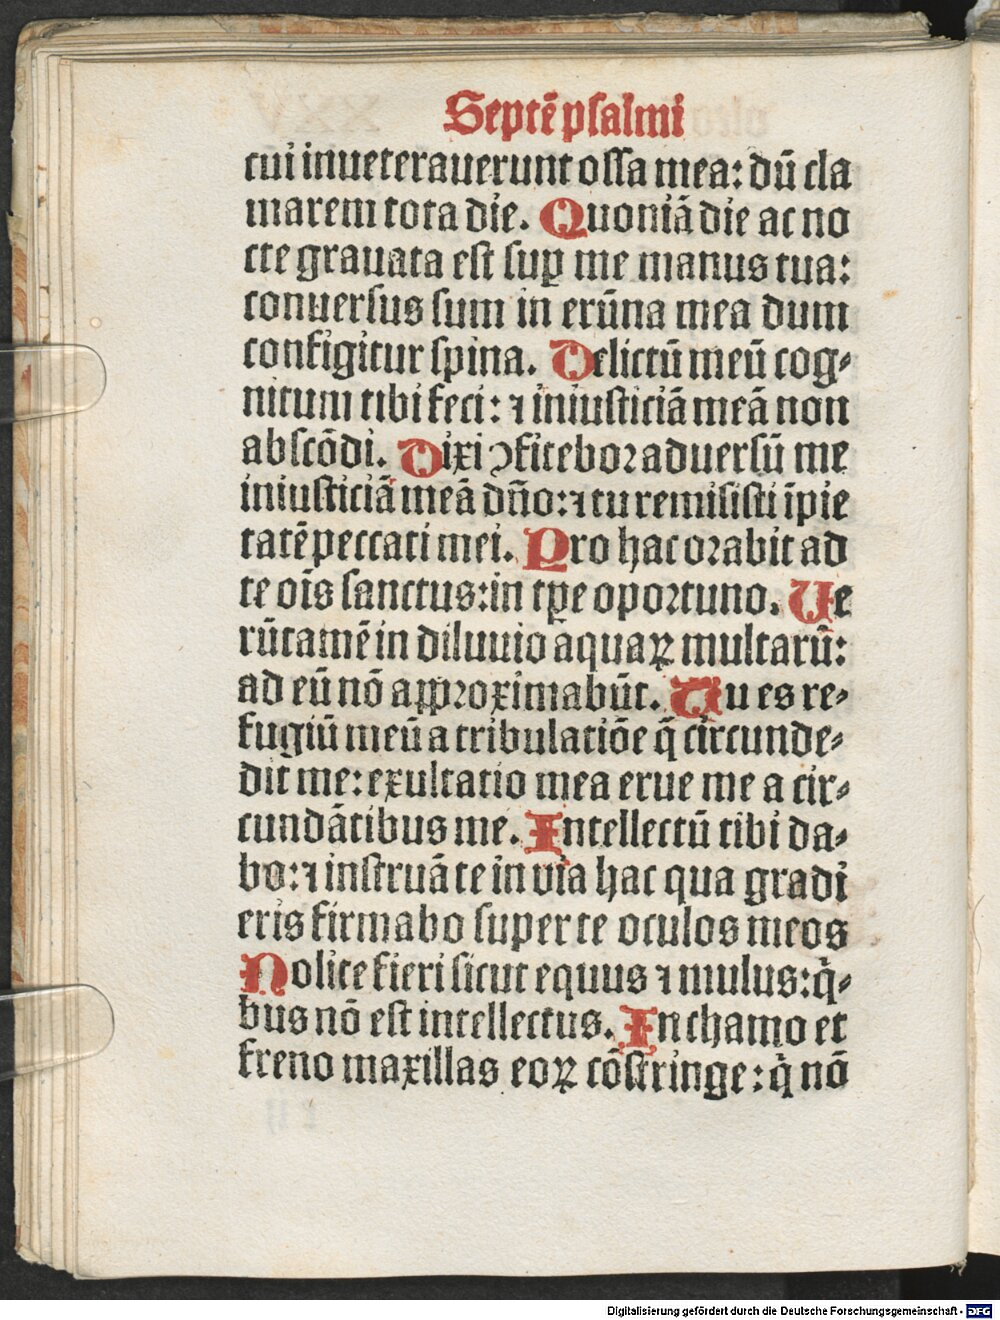 Septē psalmi
cui inueterauerunt ossa mea: dū cla
marem tota die. Quoniā die ac no
cte grauata est suꝑ me manus tua:
conuersus sum in erūna mea dum
configitur spina. Delictū meū cog⸗
nitum tibi feci: ⁊ iniusticiā meā non
abscōdi. Dixi ꝯfitebor aduersū me
iniusticiā meā dn̄o: ⁊ tu remisisti īpie
tatē peccati mei. Pro hac orabit ad
te oīs sanctus: in tꝑe oportuno. Ue
rūtamē in diluuio aquaꝝ multarū:
ad eū nō aꝓproximabūt. Tu es re⸗
fugiū meū a tribulatiōe q̄ circunde⸗
dit me: exultatio mea erue me a cir⸗
cundātibus me. Intellectū tibi da⸗
bo: ⁊ instruā te in via hac qua gradi
eris firmabo super te oculos meos
Nolite fieri sicut equus ⁊ mulus: qͥ⸗
bus nō est intellectus. In chamo et
freno maxillas eoꝝ cōstringe: qͥ nō
Digitalisierung gefördert durch die Deutsche Forschungsgemeinschaft - DFG